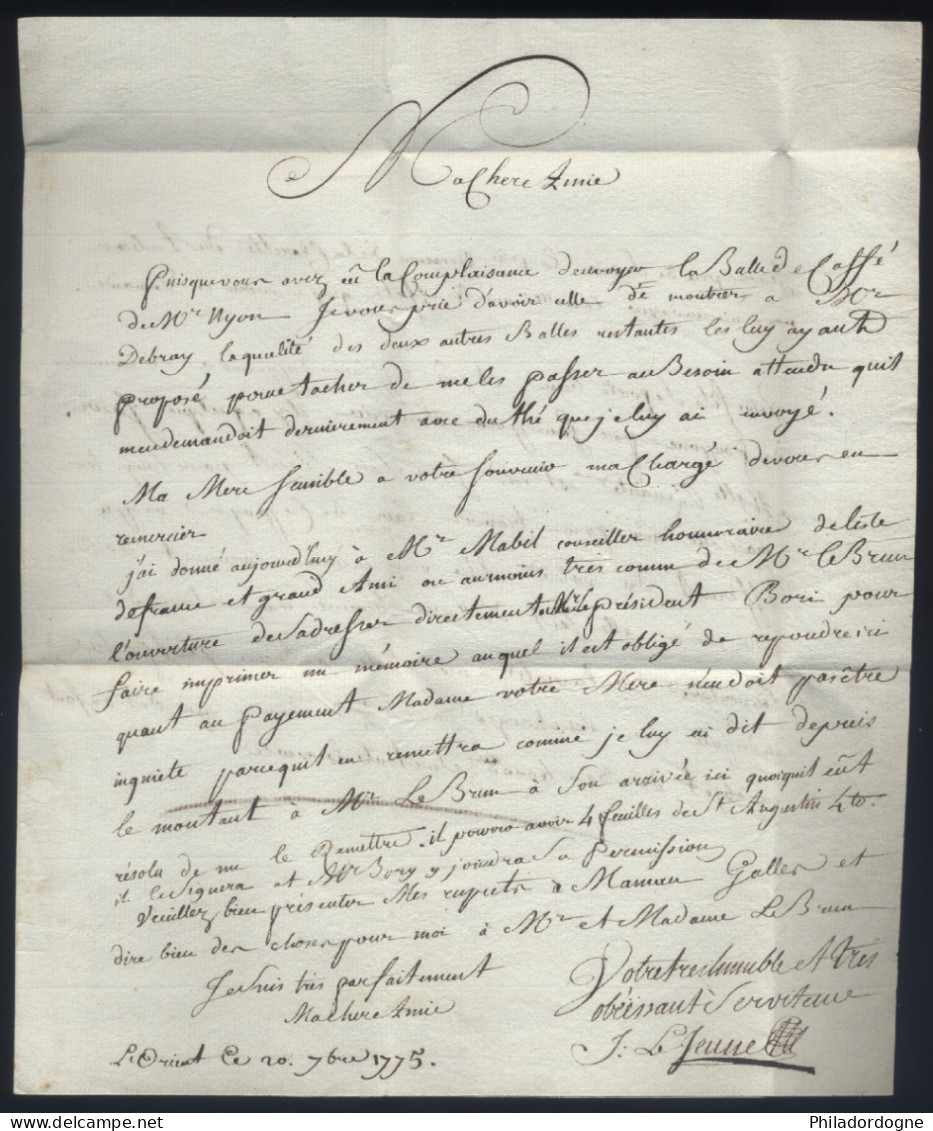 Ma Chere Amie
Puisque vous avez eû la Complaisance d'envoyer la Balle de Caffé
de Mr Nyon Je vous prie d'avoir celle de moutier a Mr
Debray la qualité des deux autres Balles restantes les luy ayant
proposé pour tacher de me les passer au Besoin attendu quil
men demandoit dernierement avec du thé que je luy ai envoyé.
Ma Mere sensible a votre souvenir ma Chargé de vous en
remercier
j'ai donné aujourd'huy à Mr Mabil conseiller honnoraire de
de france et grand Ami ou aumoins très connu de Mr le Brun
l'ouverture de s'adresser directement a Mr le président Bori pour
faire imprimer un mémoire auquel il est obligé de repondre ici
quant au payement Madame votre Mere n'en doit pas être
inquiete parcequ'il en remettra comme je luy ai dit depuis
le montant à Mr Le Brun à son arrivée ici quoiquil eût
résolu de me le Remettre. il pourra avoir 4 feuilles de St Augustin 4to.
il le signera et Mr Bory y joindra Sa permission
Veuillez bien présenter Mes respects à Maman Galles et
dire bien des choses pour moi à Mr et Madame Le Brun
Je suis très parfaitement
Ma chere Amie
Votre tres humble et très
obéissant Serviteur
J: Le Jeune
L'Orient Ce 20. 7bre 1775.
Philadordogne